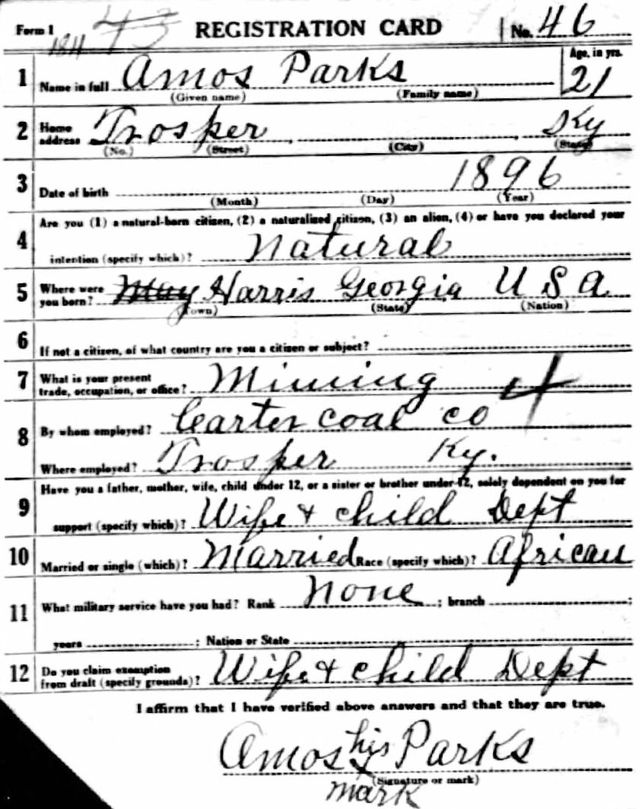 Form 1 1811 43 REGISTRATION CARD No. 46
1 Name in full Amos Parks Age, in yrs. 21
(Given name) (Family name)
2 Home address Trosper Ky
(No.) (Street) (City) (State)
3 Date of birth 1896
(Month) (Day) (Year)
Are you (1) a natural-born citizen, (2) a naturalized citizen, (3) an alien, (4) or have you declared your
4 intention (specify which)? Natural
5 Where were you born? Harris Georgia U S A
(Town) (State) (Nation)
6 If not a citizen, of what country are you a citizen or subject?
7 What is your present trade, occupation, or office? Mining 4
8 By whom employed? Carter Coal Co
Where employed? Trosper Ky.
9 Have you a father, mother, wife, child under 12, or a sister or brother under 12, solely dependent on you for
support (specify which)? Wife & child Dept
10 Married or single (which)? Married Race (specify which)? African
11 What military service have you had? Rank None ; branch ;
years ; Nation or State
12 Do you claim exemption from draft (specify grounds)? Wife & child Dept
I affirm that I have verified above answers and that they are true.
Amos his X Parks
(Signature or mark)
mark